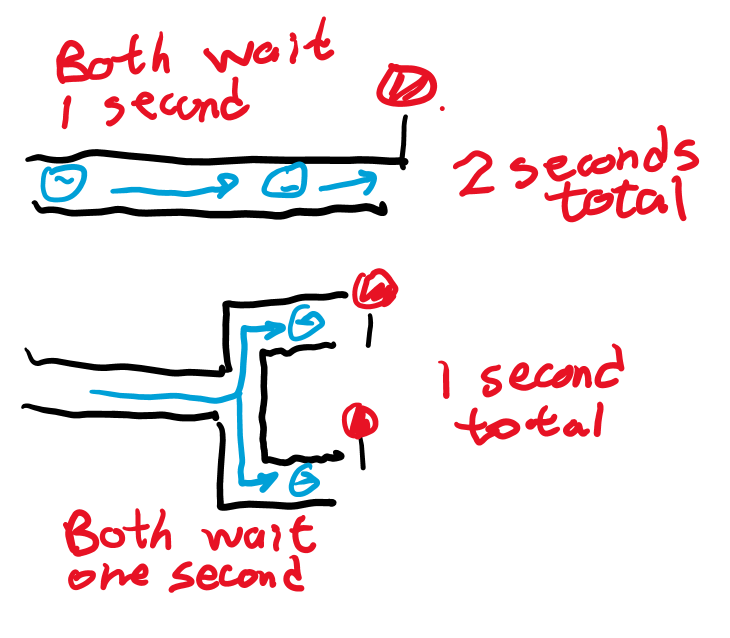 Both wait
1 second
2 seconds
total
1 second
total
Both wait
one second